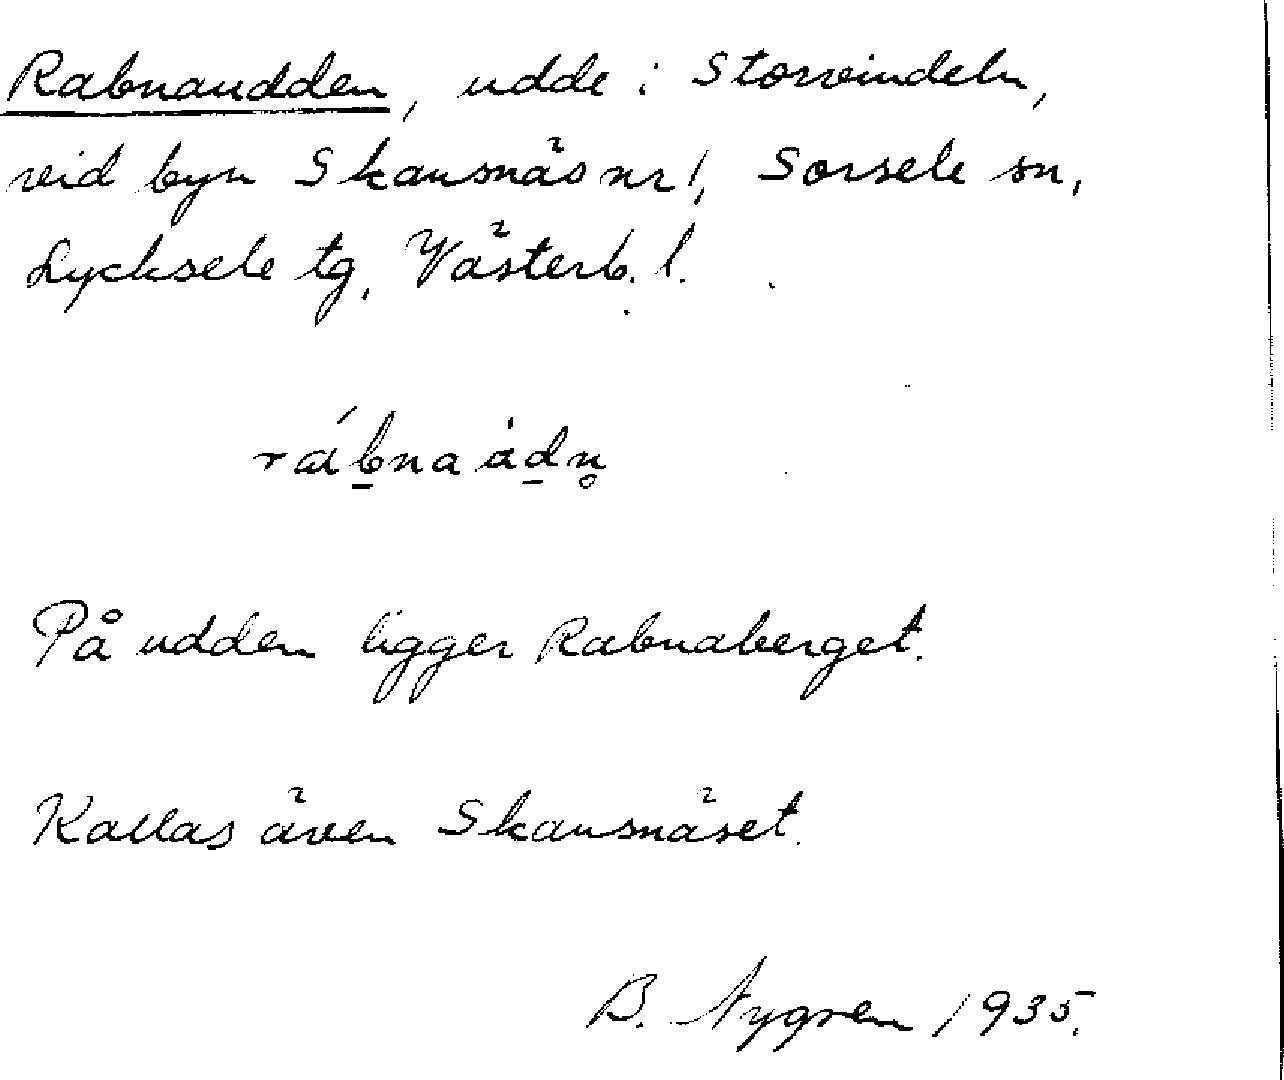 Rabnaudden, udde i Storvindeln,
vid byn Skansnäs nr 1, Sorsele sn,
Lycksele tg, Västerb. l.
rábnaȧdn̥
På udden ligger Rabnaberget.
Kallas även Skansnäset.
B. Nygren 1935.